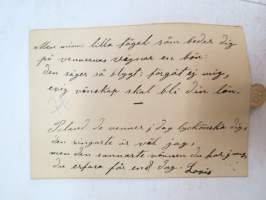 Men minns lilla fågel som beder dig
på vännernas vägnar en bön:
den säger så blygt: förgät ej mig,
evig vänskap skal bli din lön.
—
Bland de venner i dag lyckönska dig,
den ringaste är väl jag,
men den sannaste vännen du har j
du erfara får en d dag. Lovis